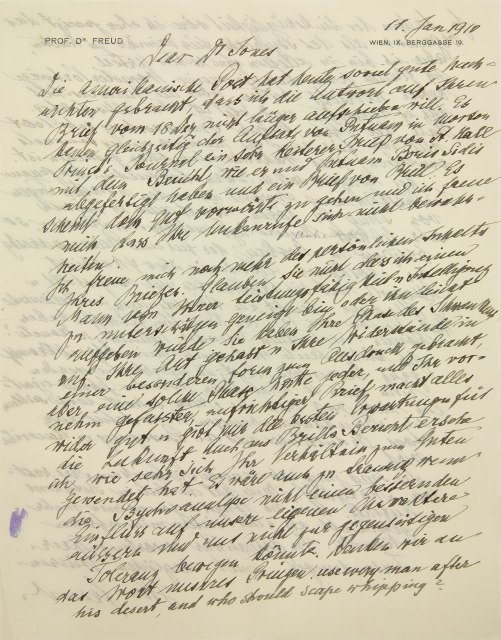 11. Jan 1910
PROF. Dr FREUD
WIEN, IX. BERGGASSE 19.
Dear Dr Jones
Die amerikanische Post hat heute soviel gute Nach-
richten gebracht, dass ich die Antwort auf Ihren
Brief vom nicht länger aufschieben will. Es
kamen gleichzeitig der Aufsatz von Putnam in Morton
Prince's Journal ein sehr heiterer Brief von St. Hall
mit dem Bericht wie er und Putnam Boris Sidis
abgefertigt haben und ein Brief von Brill. Es
scheint doch gut vorwärts zu gehen und ich freue
mich dass Ihre Unkenrufe sich nicht bewahr-
heiten.
Ich freue mich noch mehr des persönlichen Inhalts
Ihres Briefes. Glauben Sie nicht dass ich einen
Mann von Ihrer Leistungsfähigkeit u Intelligenz
zu unterschätzen geneigt bin oder ihn leicht
aufgeben würde. Sie haben Ihre Phase des Schwankens
auf Ihre Art gehabt u Ihre Widerstände in
einer besonderen Form zum Ausdruck gebracht,
aber eine solche Phase hatte jeder, und Ihr vor-
nehm gefasster, aufrichtiger Brief macht alles
wieder gut u gibt mir die besten Erwartungen für
die Zukunft. Auch aus Brills Bericht ersehe
ich, wie sehr sich Ihr Verhältnis zum Guten
gewendet hat. Es wäre auch zu traurig wenn
die Psychoanalyse nicht einen bessernden
Einfluss auf unsere eigenen Charaktere
äussern und uns nicht zur gegenseitigen
Toleranz bewegen könnte. Denken wir an
das Wort unseres Prinzen, use every man after
his desert, and who should scape whipping?